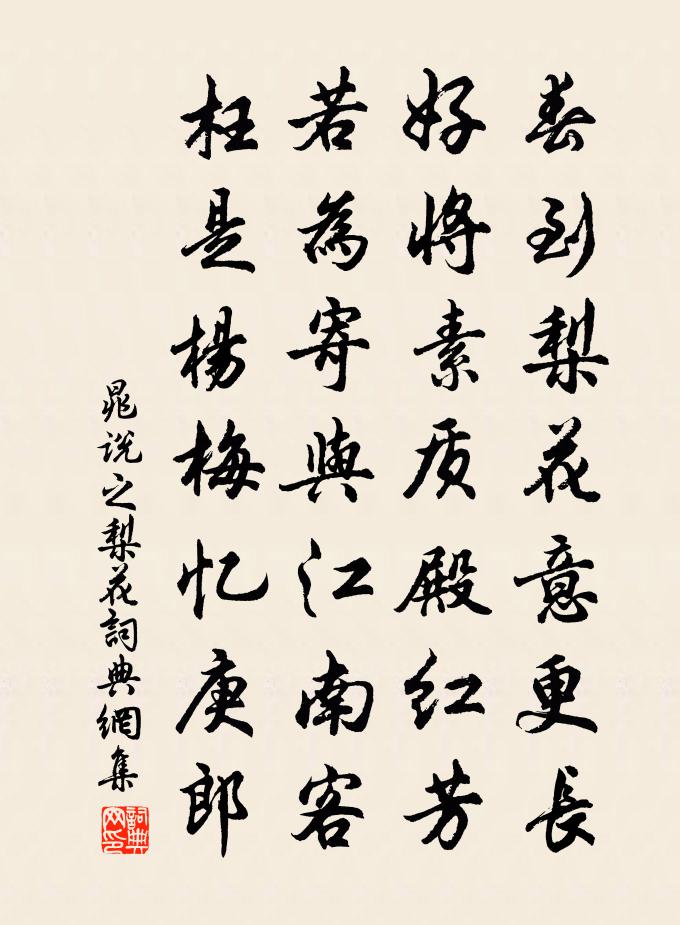 春到梨花意更長
好將素质殿红芳
若為寄與江南客
枉是楊梅忆庚郎
晁说之梨花詞典網集
詞典网印